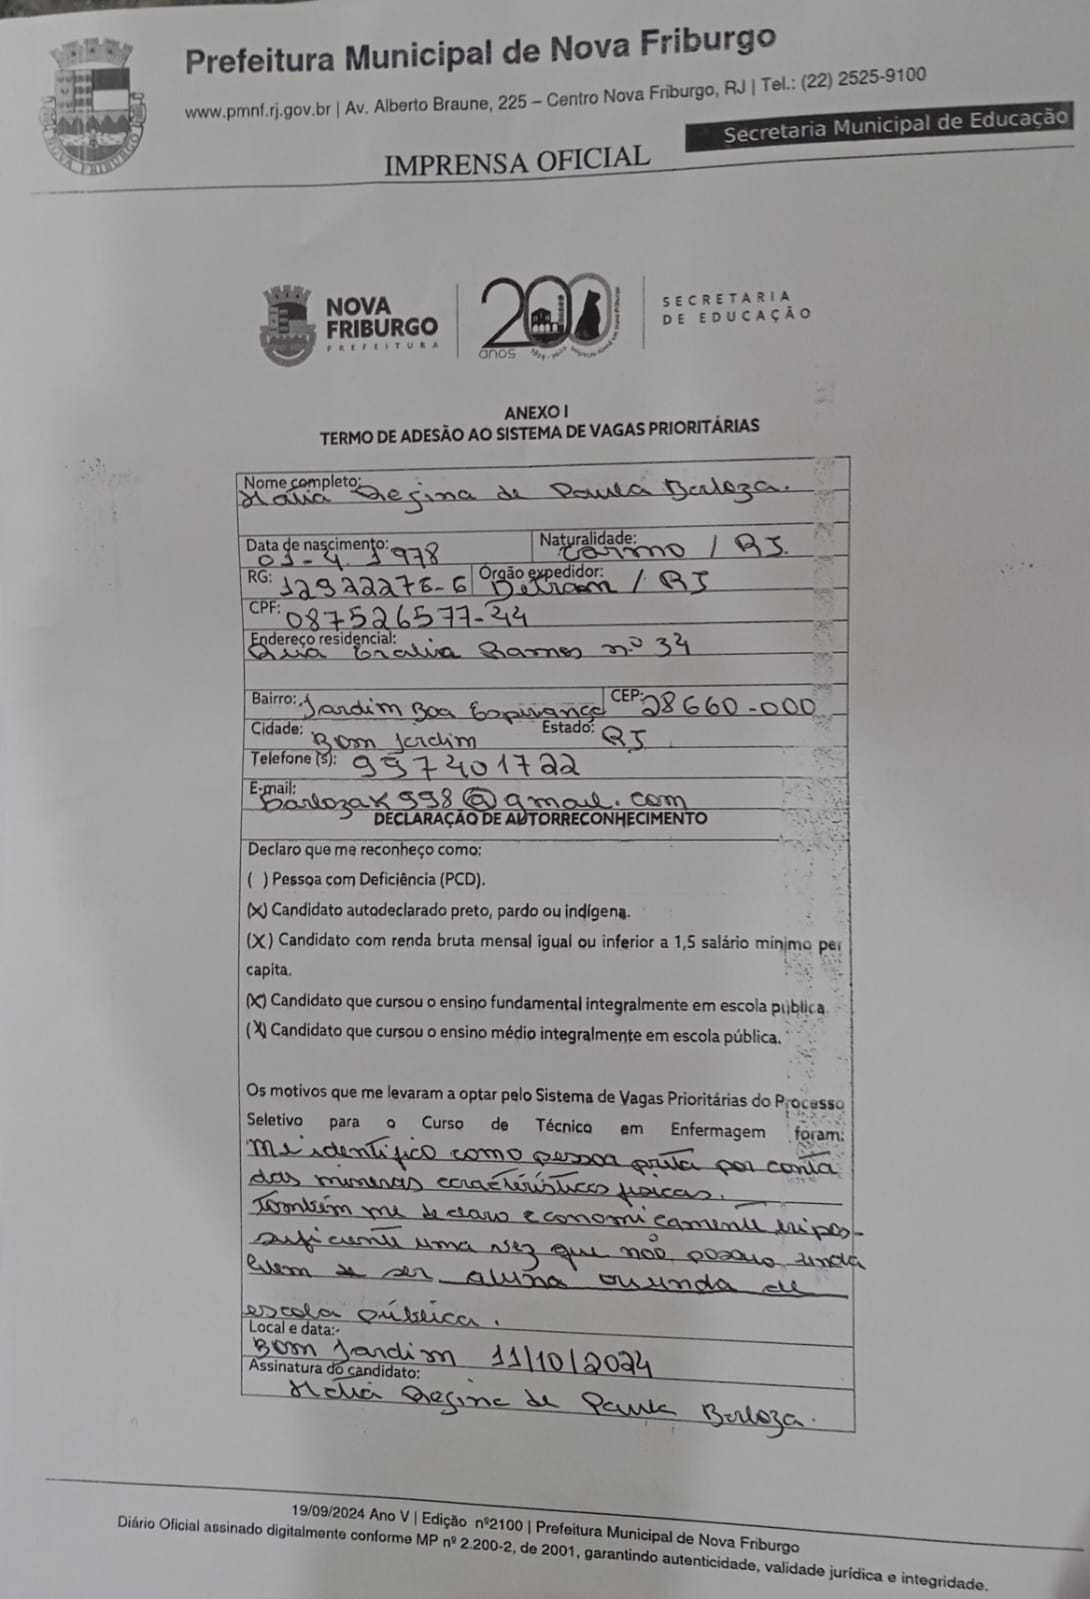 Prefeitura Municipal de Nova Friburgo
www.pmnf.rj.gov.br | Av. Alberto Braune, 225 – Centro Nova Friburgo, RJ | Tel.: (22) 2525-9100
Secretaria Municipal de Educação
IMPRENSA OFICIAL
NOVA FRIBURGO
NOVA
FRIBURGO
PREFEITURA
200
anos
SECRETARIA
DE EDUCAÇÃO
ANEXO I
TERMO DE ADESÃO AO SISTEMA DE VAGAS PRIORITÁRIAS
Nome completo: Regina de Paula Barloza.
Data de nascimento: Naturalidade: Carmo / RJ.
RG: 12922276-6 Órgão expedidor: Detran / RJ
CPF: 087526577-44
Endereço residencial: Rua Eralia Ramos nº 34
Bairro: Jardim Boa Esperança CEP: 28660-000
Cidade: Bom Jardim Estado: RJ
Telefone (s): 997401722
E-mail: barlozak998@gmail.com
DECLARAÇÃO DE AUTORRECONHECIMENTO
Declaro que me reconheço como:
( ) Pessoa com Deficiência (PCD).
(X) Candidato autodeclarado preto, pardo ou indígena.
(X) Candidato com renda bruta mensal igual ou inferior a 1,5 salário mínimo per
capita.
(X) Candidato que cursou o ensino fundamental integralmente em escola pública.
(X) Candidato que cursou o ensino médio integralmente em escola pública.
Os motivos que me levaram a optar pelo Sistema de Vagas Prioritárias do Processo
Seletivo para o Curso de Técnico em Enfermagem foram:
Me identifico como pessoa preta por conta
das minhas características físicas.
Também me declaro economicamente hipos-
suficiente uma vez que não possuo renda
Bem de ser aluna ounda de
escola pública.
Local e data:
Bom Jardim 11/10/2024
Assinatura do candidato:
Regina de Paula Barloza.
19/09/2024 Ano V | Edição nº2100 | Prefeitura Municipal de Nova Friburgo
Diário Oficial assinado digitalmente conforme MP nº 2.200-2, de 2001, garantindo autenticidade, validade jurídica e integridade.